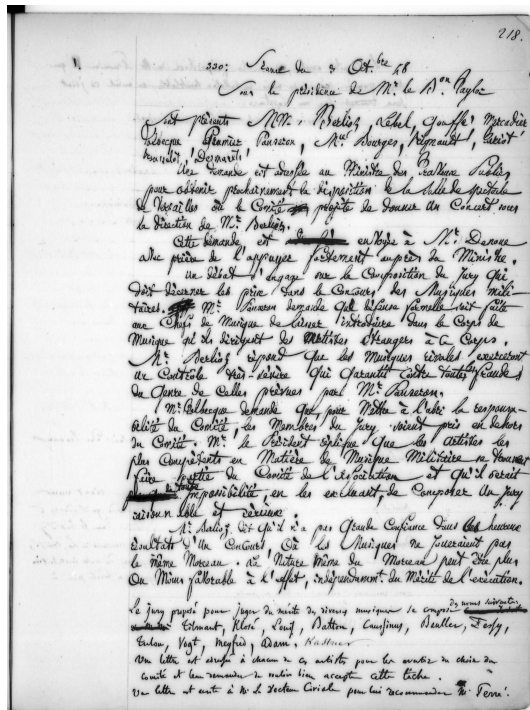 218.
330. Séance du 3 Octbre 48
Sous la présidence de Mr. le Bon Taylor
Sont présents MM. Berlioz, Lebel, Gouffé, Mercadier
Delsecque, Prumier, Panseron, Mel Bourges, Rignault, Variot
Desmarets.
Une demande est adressée au Ministre des Travaux Publics
pour obtenir prochainement la disposition de la Salle de Spectacle
de Versailles où le Comité projette de donner un Concert sous
la direction de Mr. Berlioz.
Cette demande, est envoyée à Mr. Denoue
avec prière de l'appuyer fortement auprès du Ministre.
Un débat s'engage sur la Composition du Jury qui
doit décerner les prix dans le Concours des Musiques mili-
taires. Mr. Panseron demande que défense formelle soit faite
aux Chefs de Musique de laisser introduire dans le Corps de
Musique qu'ils dirigent des Artistes étrangers à ce Corps.
Mr. Berlioz répond que les Musiques rivales exerceront
un Contrôle très-sévère qui garantit contre toutes les fraudes
du genre de Celles prévues par Mr. Panseron.
Mr. Delsecque demande que pour Mettre à l'abri la responsa-
bilité du Comité, les Membres du Jury soient pris en dehors
du Comité. Mr. le Président explique que les Artistes les
plus Compétents en Matière de Musique Militaire se trouvent
faire partie du Comité de l'Association et qu'il serait
de toute impossibilité, en les excluant de Composer un Jury
raisonnable et sérieux.
Mr. Berlioz dit qu'il n'a pas grande Confiance dans les heureux
résultats d'un Concours Où les Musiques ne joueraient pas
le même Morceau. La Nature même du Morceau peut être plus
Ou Moins favorable à l'effet, indépendamment du Mérite de l'exécution.
Le jury proposé pour juger du mérite des diverses musiques se compose des noms suivants
Tilmant, Klosé, Louis, Batton, Caussinus, Beuller, Fessy,
Tulou, Vogt, Meifred, Adam, Kastner
Une lettre est adressée à chacun de ces artistes pour les avertir du choix du
comité et leur demander de vouloir bien accepter cette tâche.
Une lettre est écrite à Mr. le Docteur Civiale pour lui recommander Mr. Ferré.